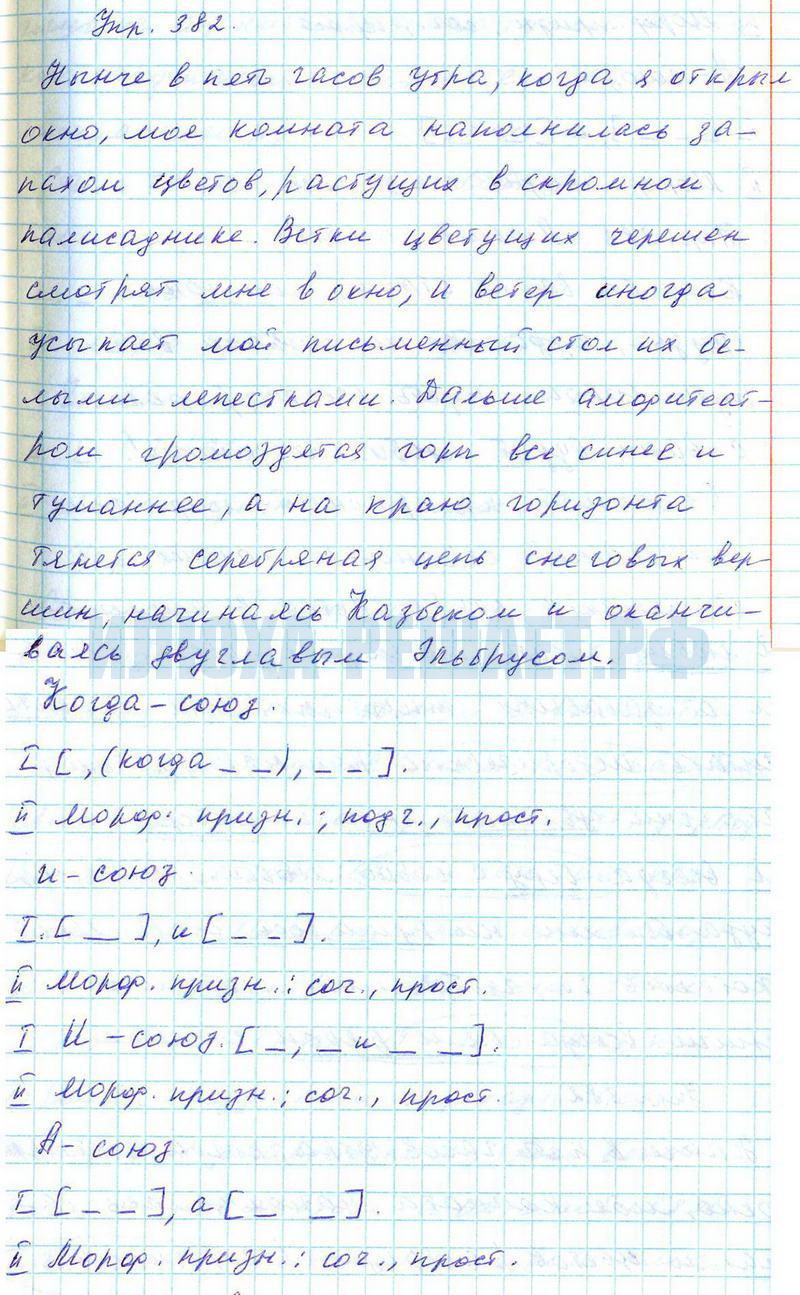 Упр. 382.
Нынче в пять часов утра, когда я открыл
окно, моя комната наполнилась за-
пахом цветов, растущих в скромном
палисаднике. Ветки цветущих черешен
смотрят мне в окно, и ветер иногда
усыпает мой письменный стол их бе-
лыми лепестками. Дальше амфитеат-
ром громоздятся горы все синее и
туманнее, а на краю горизонта
тянется серебряная цепь снеговых вер-
шин, начинаясь Казбеком и оканчи-
ваясь двуглавым Эльбрусом.
ИЛОХА-РЕШАЕТ.РФ
Когда – союз.
I [ , (когда _ _), _ _ ].
II Морф. призн.: подч., прост.
и – союз.
I. [ __ ], и [ _ _ ].
II Морф. призн.: соч., прост.
I И – союз. [ _, _ и _ _ ].
II Морф. призн.: соч., прост.
А – союз.
I [ _ _ ], а [ _ _ ].
II Морф. призн.: соч., прост.